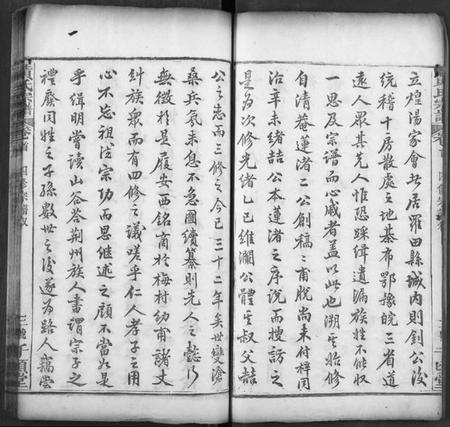 立煌湯家會者居羅田縣城內則劉公後
統稽十房散處之地棊布鄂豫皖三省道
遠人眾其先人惟恐踩緝遺漏族牲不能收
一思及宗譜而心戚者蓋以此也溯是始修
自清菴蓮渚二公創稿二甫脫尚未付梓同
治辛未緒喆公本蓮渚之序說而搜訪之
是為次修光緒乙巳維瀾公體是叔父喆
公之志而三修之今已三十二年矣世變滄
桑兵氛未息不急圖續纂則先人之懿行
無徵於是履安西銘商於梅村幼甫諸丈
糾族眾而有四修之議嗟乎仁人孝子之用
心不忘祖德宗功而思繼述之顧不當如是
乎緝明嘗讀山谷荅荆州族人書謂宗子之
禮廢同姓之子孫數世之後遂為路人竊嘗